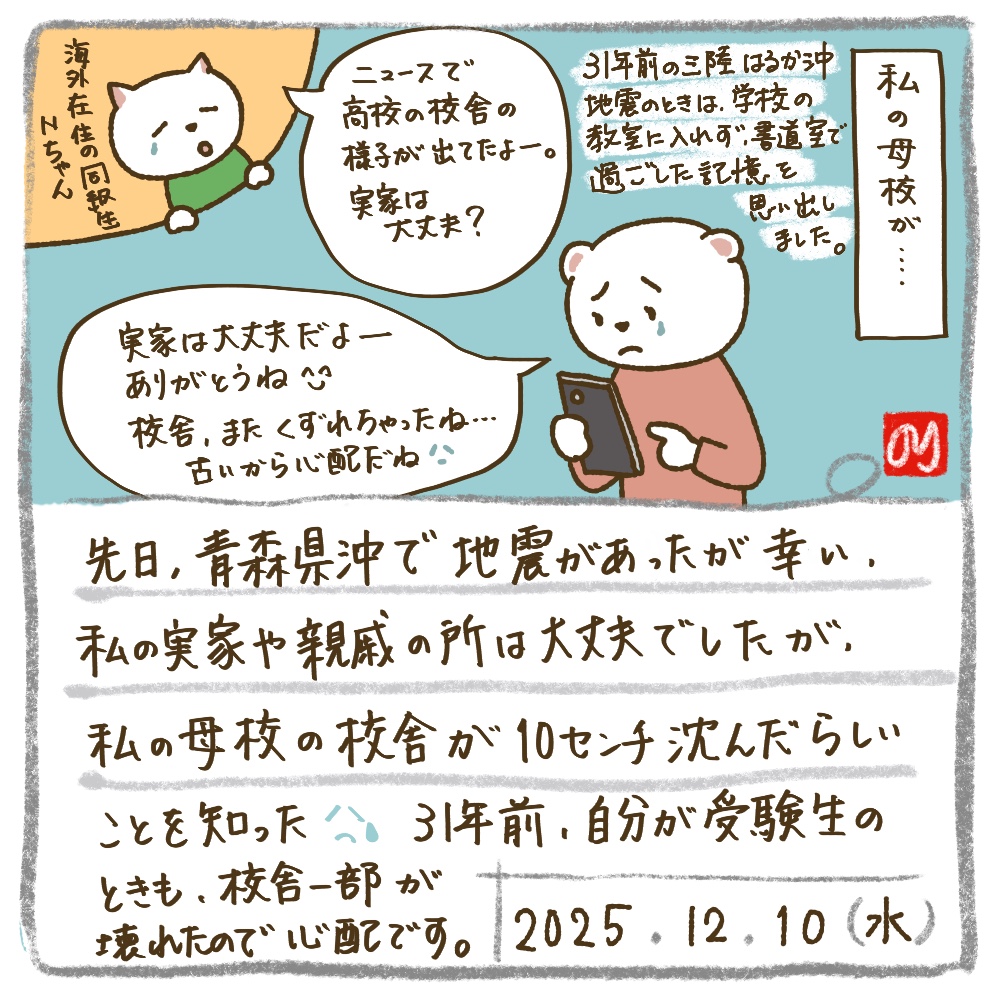 私の母校が‥‥
31年前の三陸はるか沖
地震のときは、学校の
教室に入れず、書道室で
過ごした記憶を
思い出し
ました。
海外在住の同級生
Nちゃん
ニュースで
高校の校舎の
様子が出てたよー。
実家は
大丈夫?
実家は大丈夫だよー
ありがとうね
校舎、またくずれちゃったね…
古いから心配だね
先日、青森県沖で地震があったが幸い、
私の実家や親戚の所は大丈夫でしたが、
私の母校の校舎が10センチ沈んだらしい
ことを知った 31年前、自分が受験生の
ときも、校舎一部が
壊れたので心配です。
2025.12.10(水)